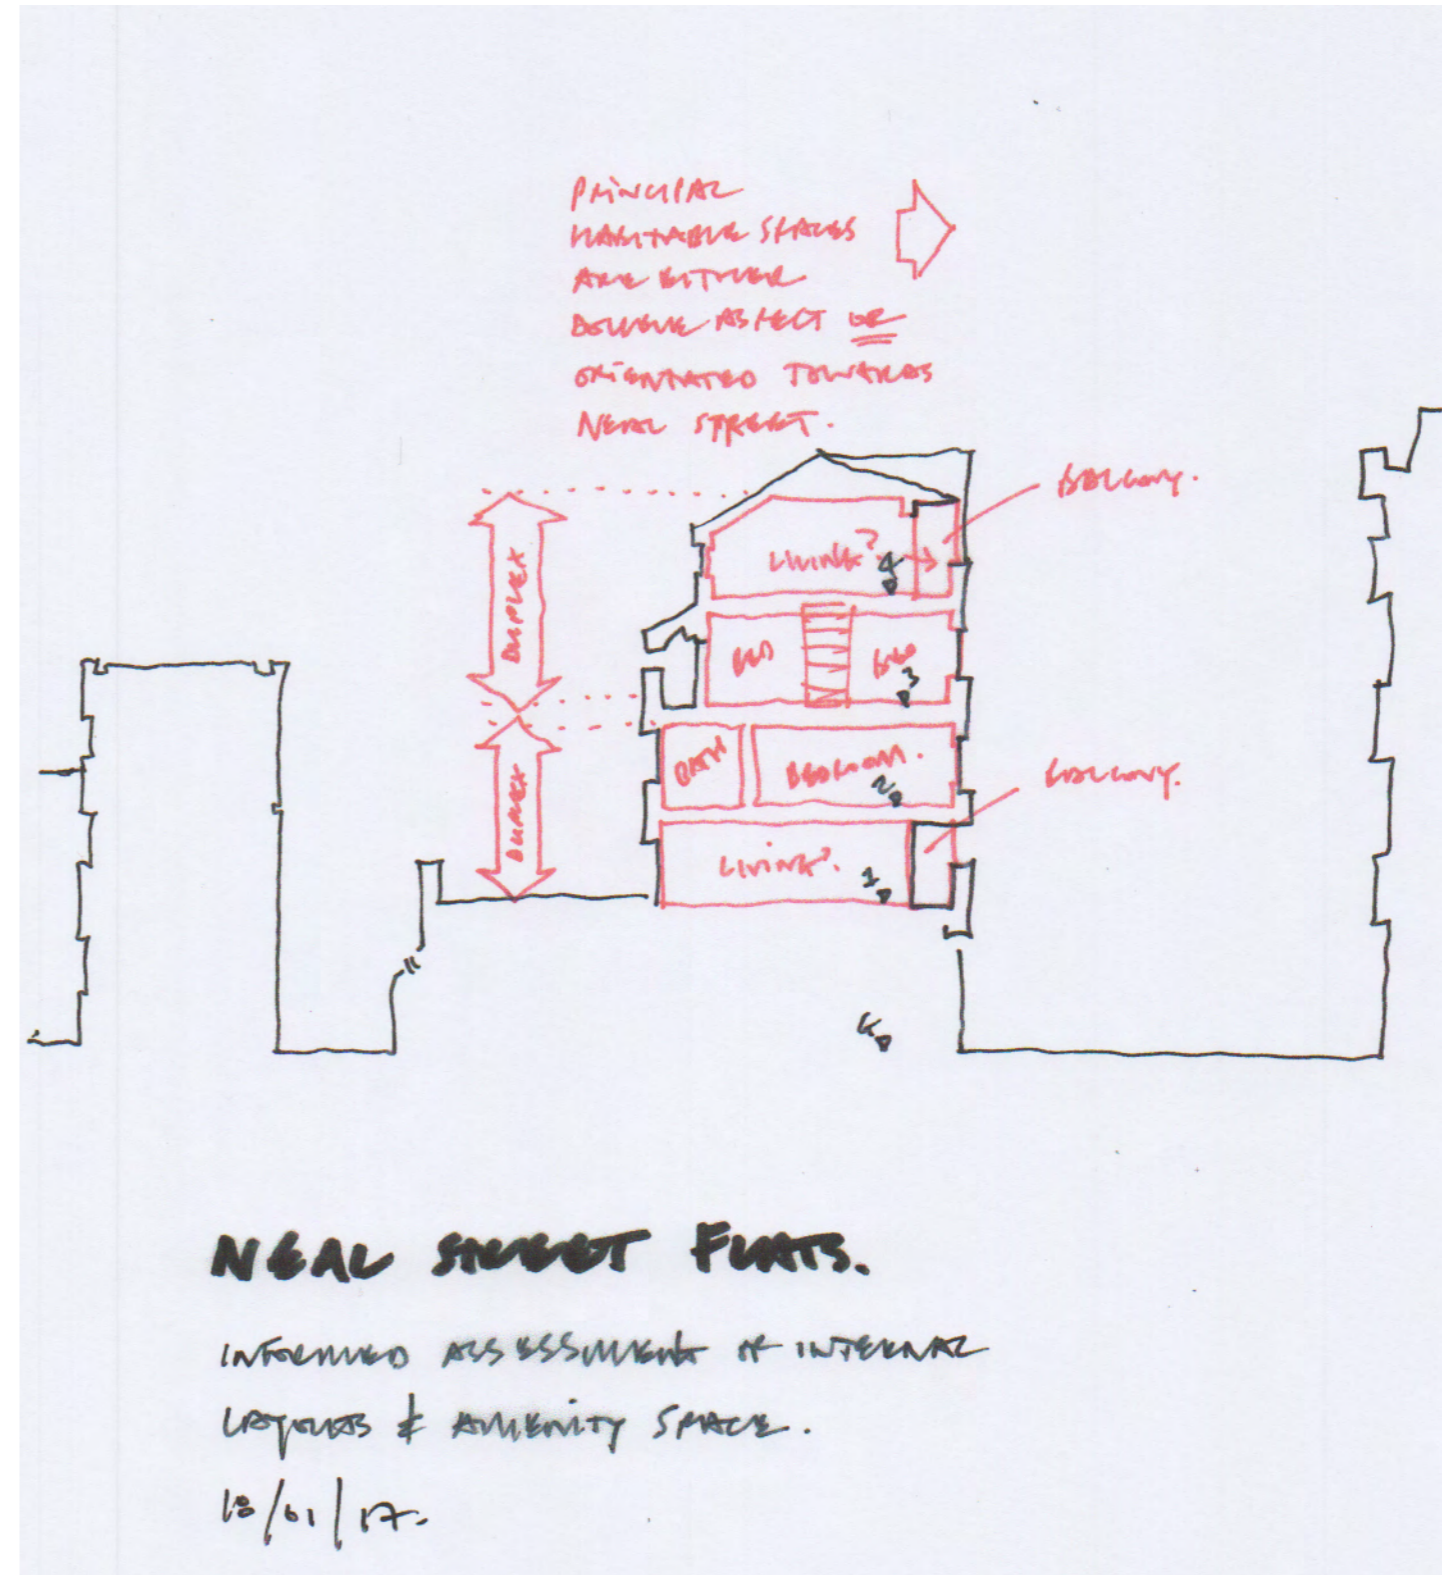 PRINCIPAL
HABITABLE SPACES
ARE EITHER
DOUBLE ASPECT OR
ORIENTATED TOWARDS
NEAL STREET.
BALCONY.
DUPLEX
LIVING?
4
BED
BED
3
DUPLEX
BATH
BEDROOM.
2
BALCONY.
LIVING?
1
G
NEAL STREET FLATS.
INFORMED ASSESSMENT OF INTERNAL
LAYOUTS & AMENITY SPACE.
18/01/17.